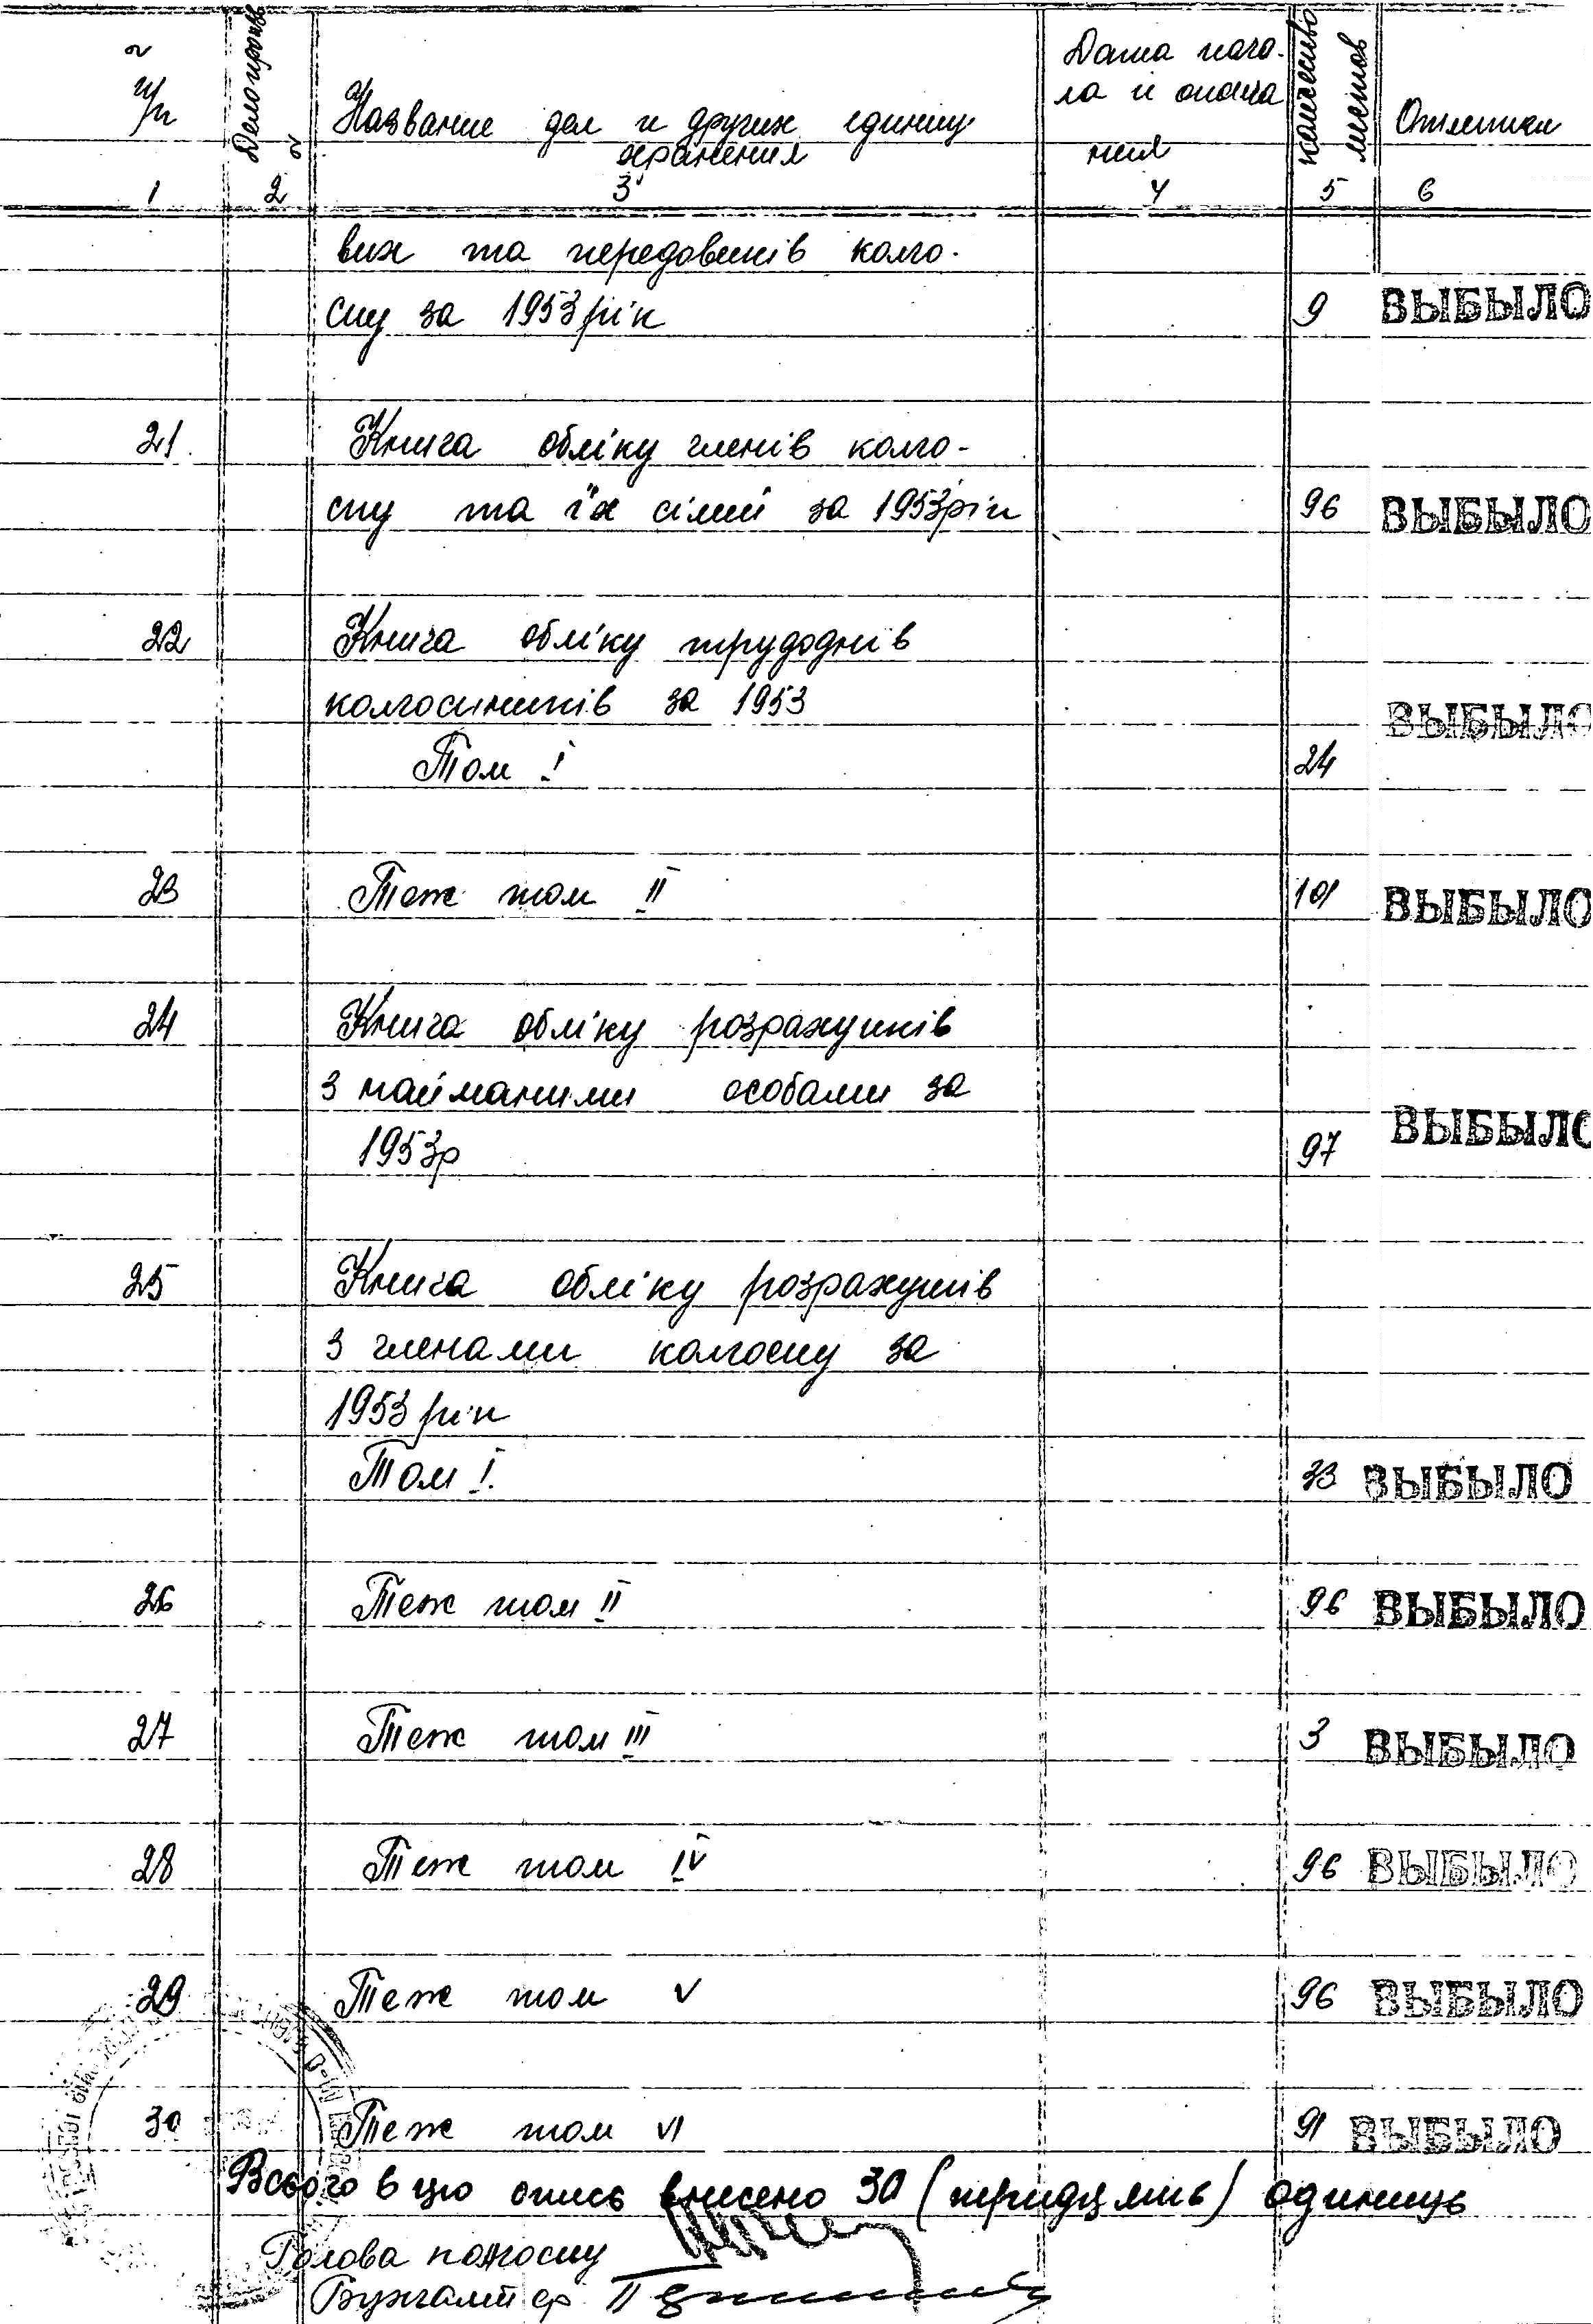 № п/п
Делопроизв №
Название дел и других единиц
хранения
Дата нача-
ла и оконча
ния
количество
листов
Отметки
1 2 3 4 5 6
вих та передовиків колго-
спу за 1953 рік 9 ВЫБЫЛО
21 Книга обліку членів колго-
спу та їх сімей за 1953 рік 96 ВЫБЫЛО
22 Книга обліку трудоднів
колгоспників за 1953 ВЫБЫЛО
Том I 24
23 Теж том II 101 ВЫБЫЛО
24 Книга обліку розрахунків
з найманими особами за ВЫБЫЛО
1953р 97
25 Книга обліку розрахунків
з членами колгоспу за
1953 рік
Том I. 33 ВЫБЫЛО
26 Теж том II 96 ВЫБЫЛО
27 Теж том III 3 ВЫБЫЛО
28 Теж том IV 96 ВЫБЫЛО
29 Теж том V 96 ВЫБЫЛО
30 Теж том VI 91 ВЫБЫЛО
Всього в цю опись внесено 30 (тридцять) одиниць
Голова колгоспу
Бухгалтер